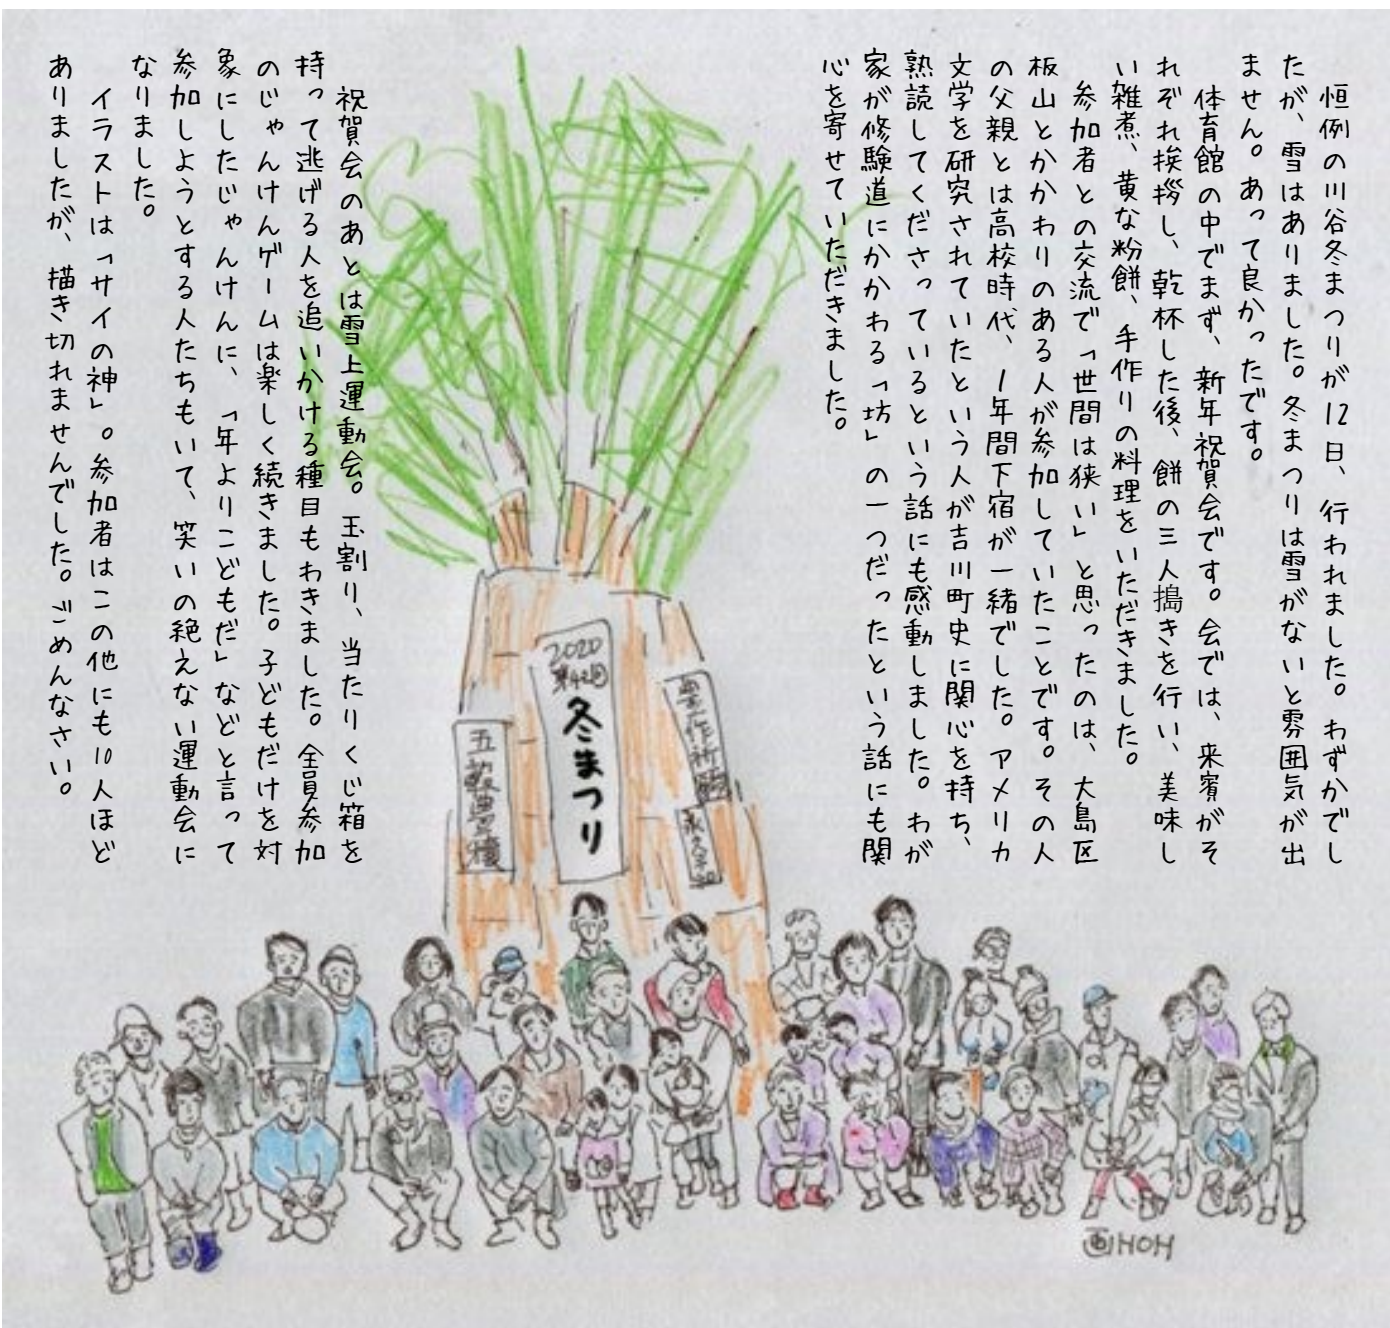 恒例の川谷冬まつりが12日、行われました。わずかでし
たが、雪はありました。冬まつりは雪がないと雰囲気が出
ません。あって良かったです。
体育館の中でまず、新年祝賀会です。会では、来賓がそ
れぞれ挨拶し、乾杯した後、餅の三人搗きを行い、美味し
い雑煮、黄な粉餅、手作りの料理をいただきました。
参加者との交流で「世間は狭い」と思ったのは、大島区
板山とかかわりのある人が参加していたことです。その人
の父親とは高校時代、1年間下宿が一緒でした。アメリカ
文学を研究されていたという人が吉川町史に関心を持ち、
熟読してくださっているという話にも感動しました。わが
家が修験道にかかわる「坊」の一つだったという話にも関
心を寄せていただきました。
祝賀会のあとは雪上運動会。玉割り、当たりくじ箱を
持って逃げる人を追いかける種目もわきました。全員参加
のじゃんけんゲームは楽しく続きました。子どもだけを対
象にしたじゃんけんに、「年よりこどもだ」などと言って
参加しようとする人たちもいて、笑いの絶えない運動会に
なりました。
イラストは「サイの神」。参加者はこの他にも10人ほど
ありましたが、描き切れませんでした。ごめんなさい。
豊作祈願
2020
第42回
冬まつり
五穀豊穣
画HOH